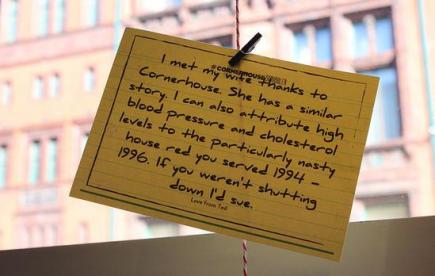 #CORNERHOUSE
I met my wife thanks to
Cornerhouse. She has a similar
story. I can also attribute high
blood pressure and cholesterol
levels to the particularly nasty
house red you served 1994 -
1996. If you weren't shutting
down I'd sue.
Love from Ted